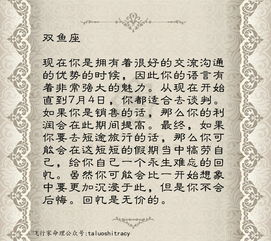 双鱼座
现在你是拥有着很好的交流沟通
的优势的时候，因此你的语言有
着非常强大的魅力。从现在开始
直到7月4日，你都适合去谈判。
如果你是销售的话，那么你的利
润会在此期间提高。最终，如果
你要去短途旅行的话，那么你可
能会在这短短的假期当中犒劳自
己，给你自己一个永生难忘的回
忆。虽然你可能会比一开始想象
中要更加沉浸于此，但是你不会
后悔。回忆是无价的。
飞行家命理公众号:taluoshitracy